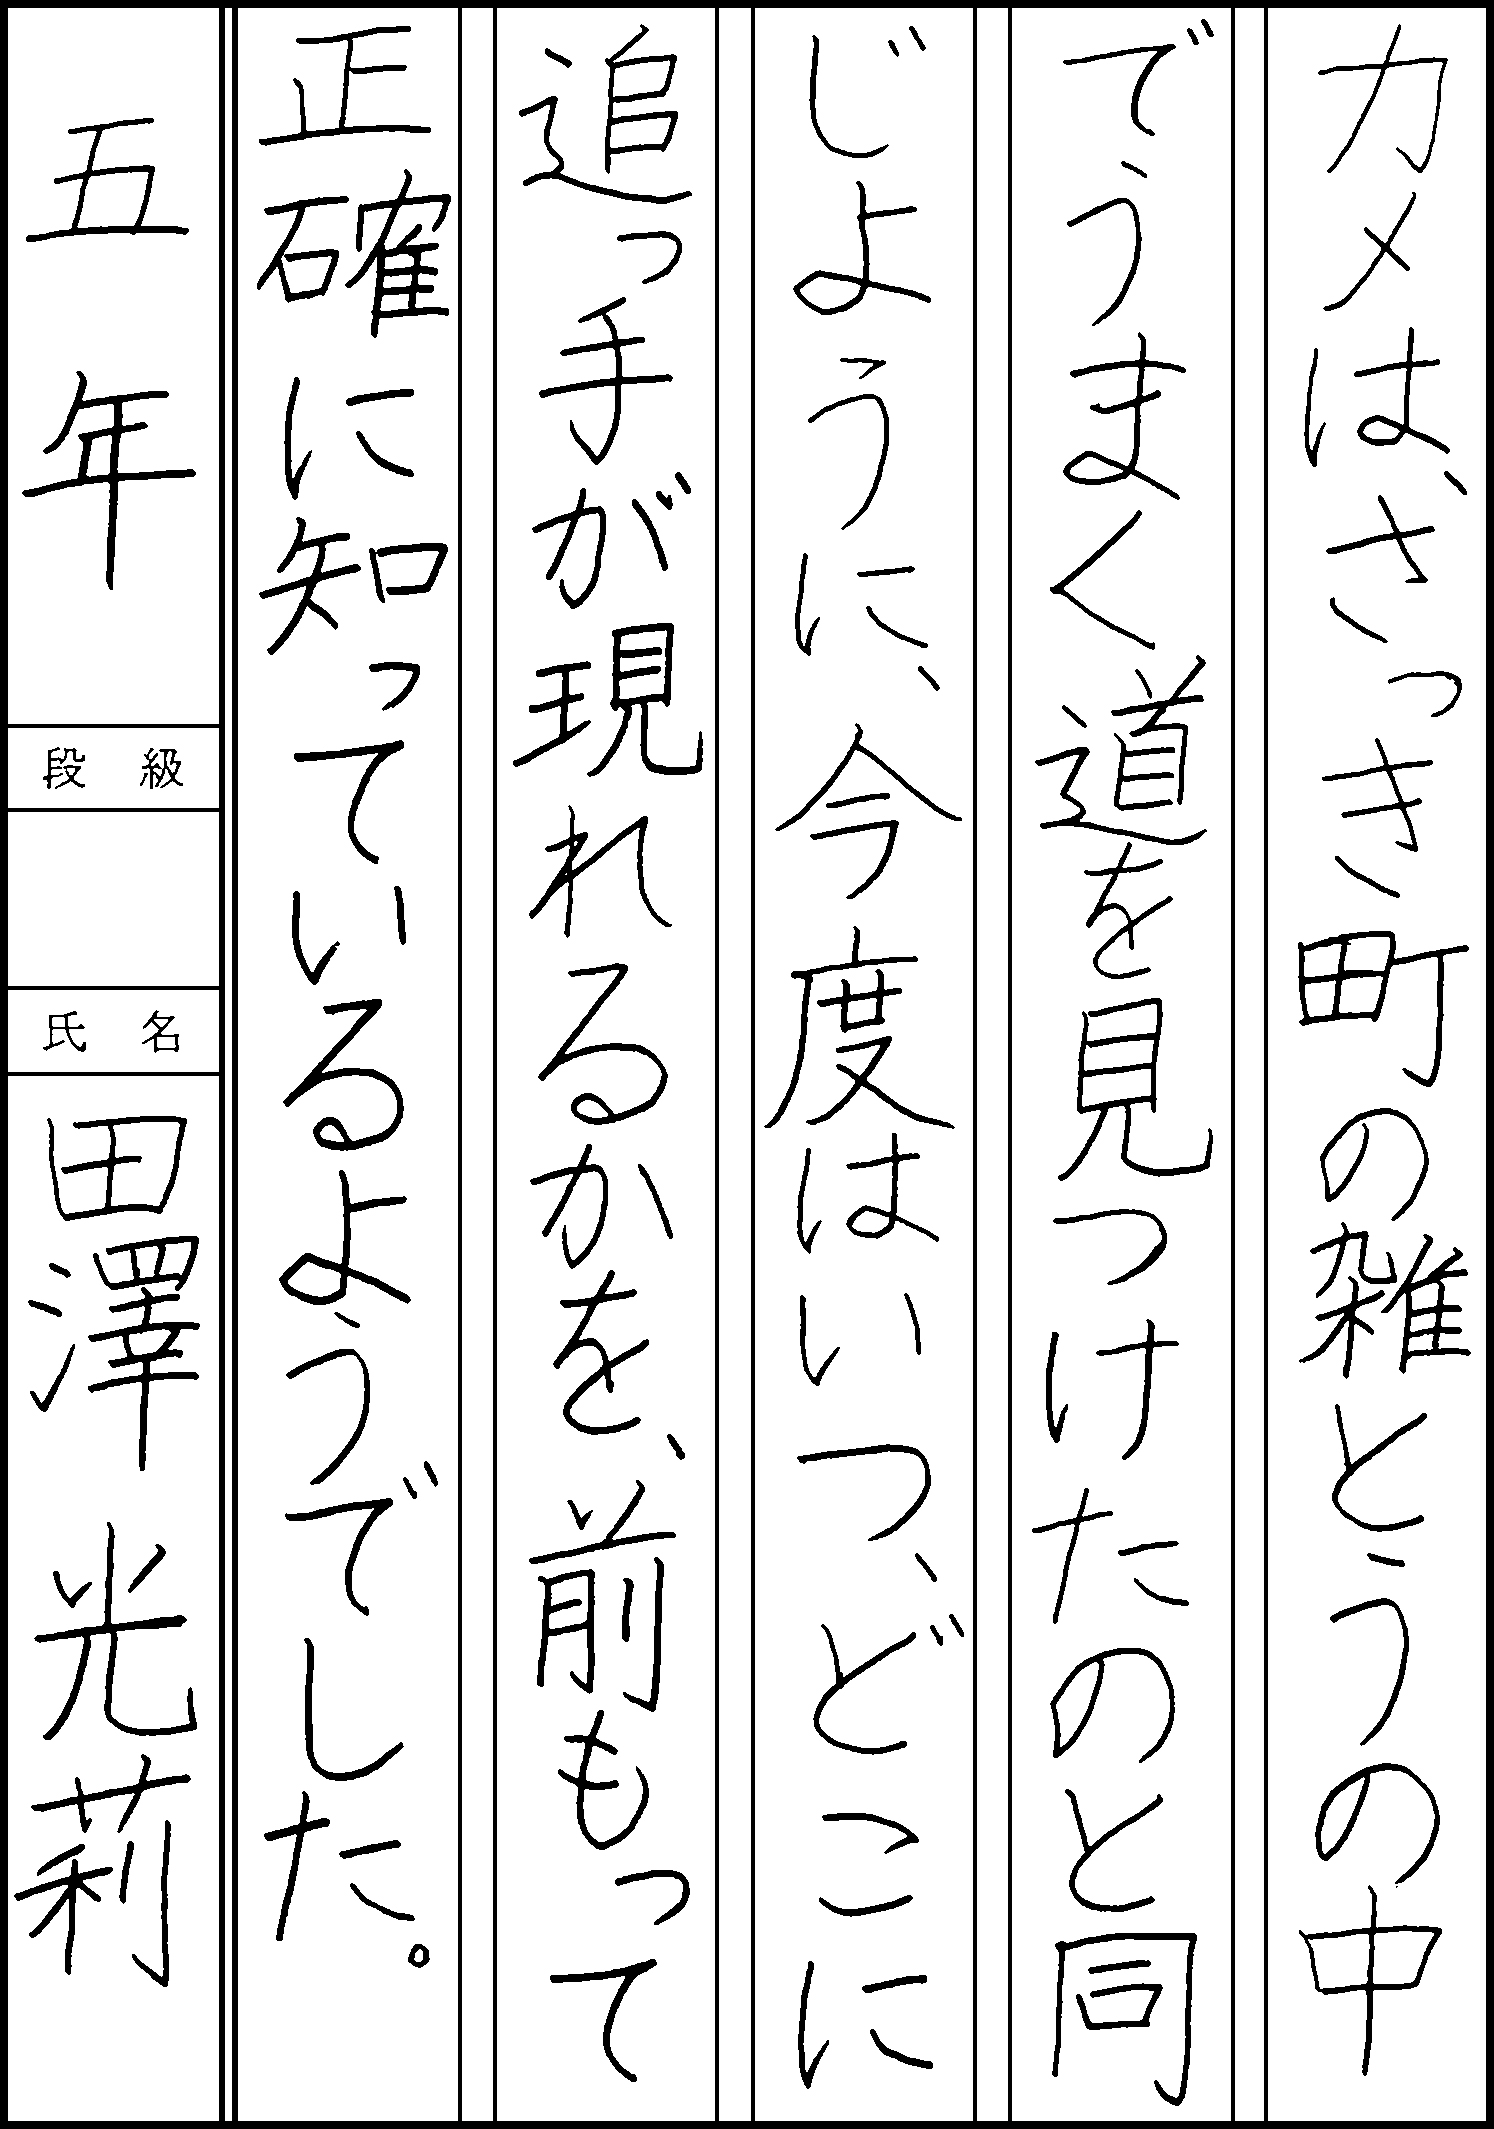 カメは、さっき町の雑とうの中
でうまく道を見つけたのと同
じように、今度はいつ、どこに
追っ手が現れるかを、前もって
正確に知っているようでした。
五年
段級
氏名
田澤光莉